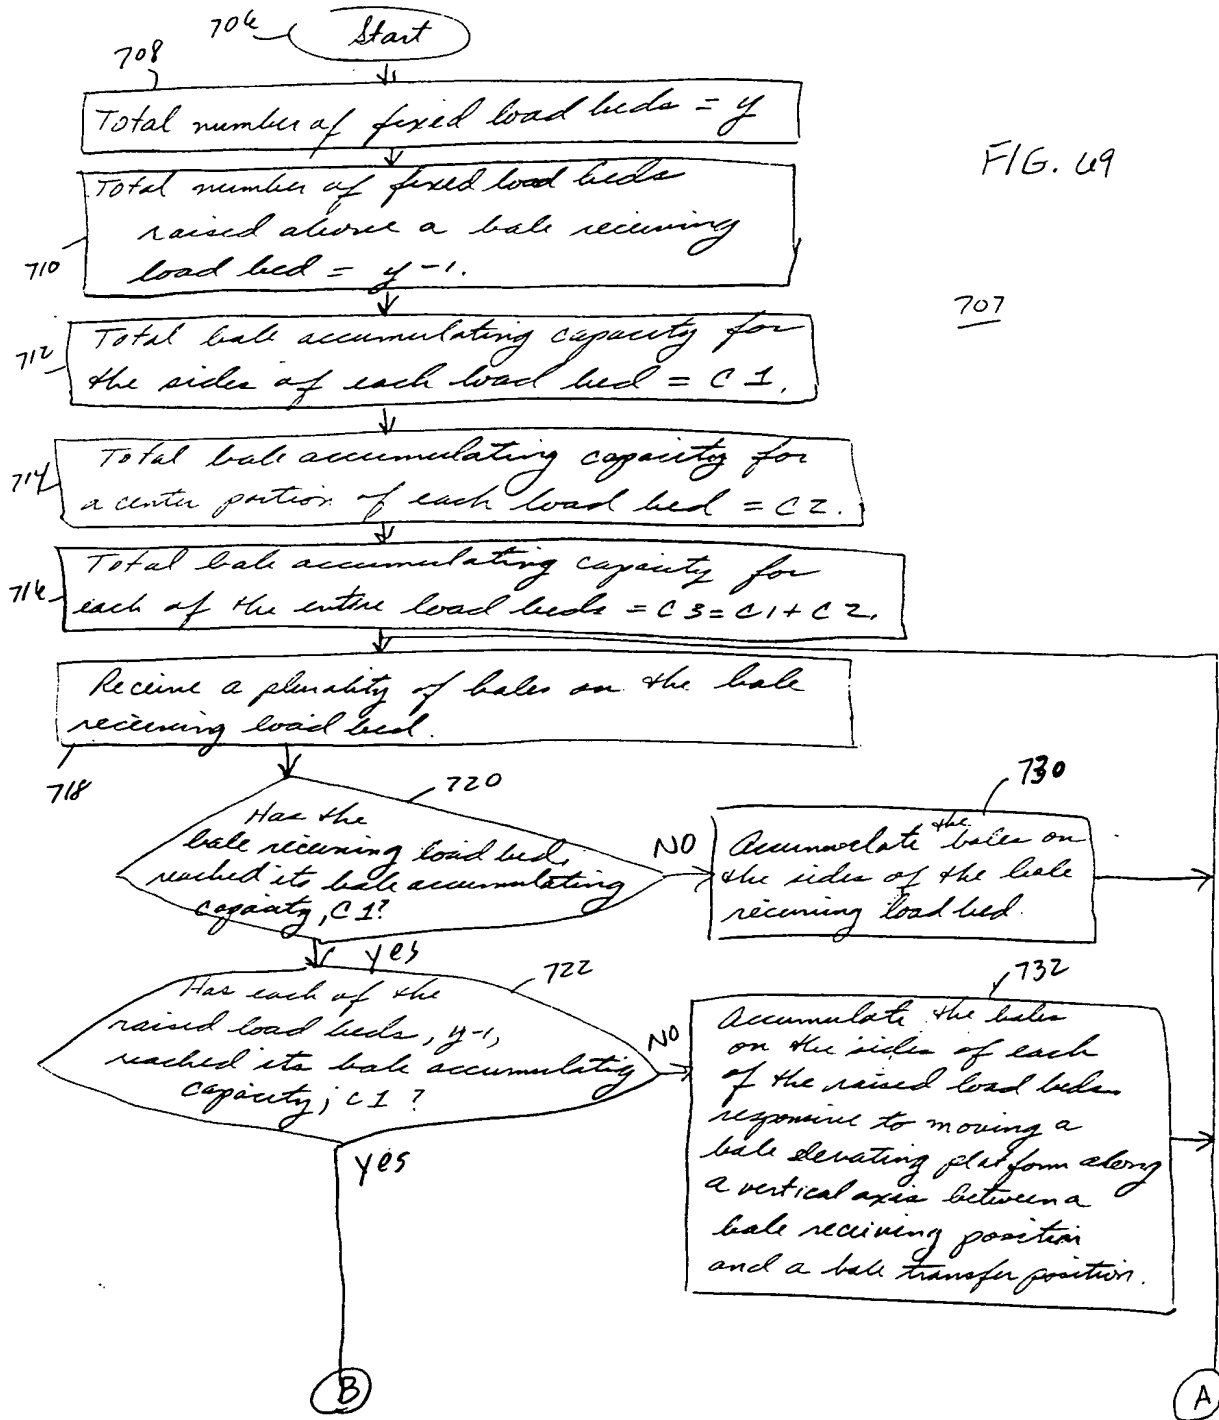 706
Start
708
Total number of fixed load beds = y
FIG. 49
Total number of fixed load beds
raised above a bale receiving
load bed = y-1.
710
707
Total bale accumulating capacity for
the sides of each load bed = C1.
712
Total bale accumulating capacity for
a center portion of each load bed = C2.
714
Total bale accumulating capacity for
each of the entire load beds = C3=C1+C2.
716
Receive a plurality of bales on the bale
receiving load bed.
718
720
Has the
bale receiving load bed,
reached its bale accumulating
capacity, C1?
NO
730
Accumulate the bales on
the sides of the bale
receiving load bed.
yes
722
Has each of the
raised load beds, y-1,
reached its bale accumulating
capacity, C1?
NO
732
Accumulate the bales
on the sides of each
of the raised load beds
responsive to moving a
bale elevating platform along
a vertical axis between a
bale receiving position
and a bale transfer position.
yes
B
A